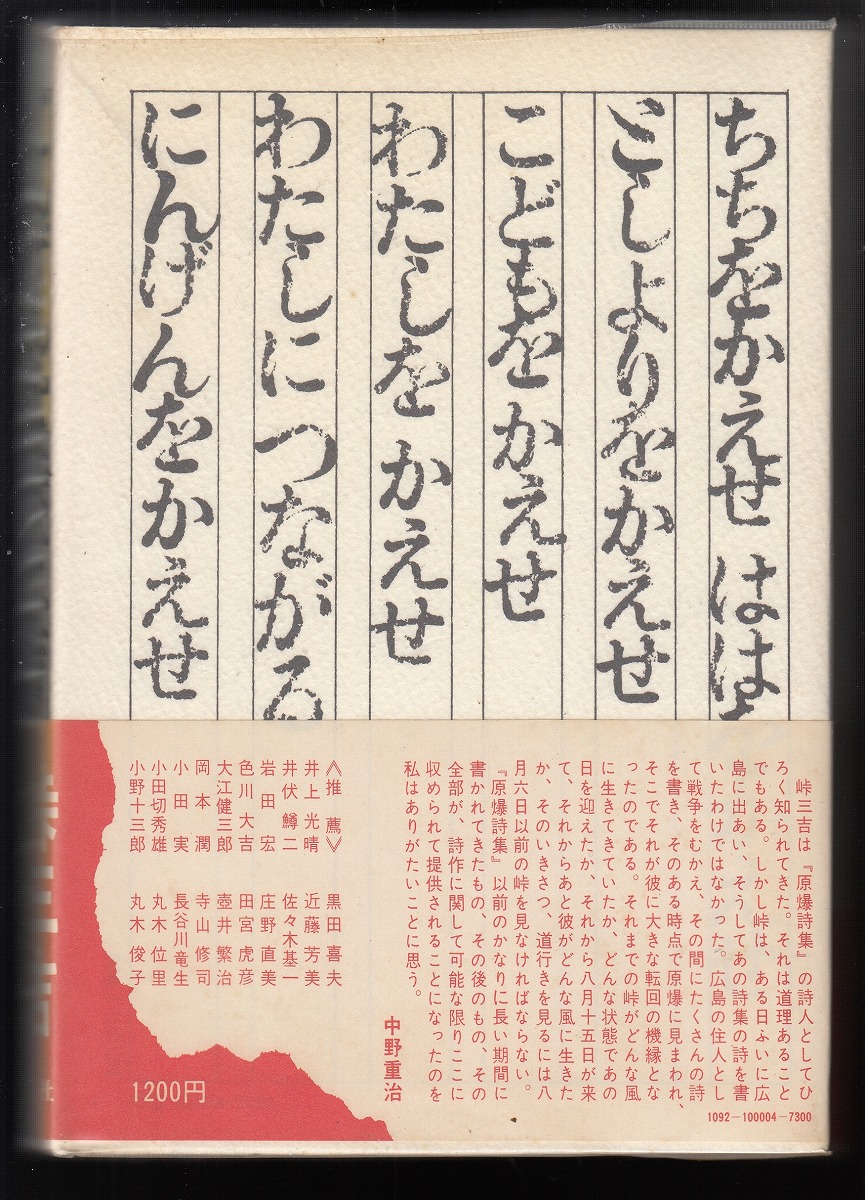 ちちをかえせ はは
としよりをかえせ
こどもをかえせ
わたしを かえせ
わたしに つながる
にんげんをかえせ
峠三吉は『原爆詩集』の詩人としてひ
ろく知られてきた。それは道理あること
でもある。しかし峠は、ある日ふいに広
島に出あい、そうしてあの詩集の詩を書
いたわけではなかった。広島の住人とし
て戦争をむかえ、その間にたくさんの詩
を書き、そのある時点で原爆に見まわれ、
そこでそれが彼に大きな転回の機縁とな
ったのである。それまでの峠がどんな風
に生きてきていたか、どんな状態であの
日を迎えたか、それから八月十五日が来
て、それからあと彼がどんな風に生きた
か、そのいきさつ、道行きを見るには八
月六日以前の峠を見なければならない。
『原爆詩集』以前のかなりに長い期間に
書かれてきたもの、その後のもの、その
全部が、詩作に関して可能な限りここに
収められて提供されることになったのを
私はありがたいことに思う。
中野重治
《推薦》
井上光晴
井伏鱒二
岩田宏
色川大吉
大江健三郎
岡本潤
小田実
小田切秀雄
小野十三郎
黒田喜夫
近藤芳美
佐々木基一
庄野直美
田宮虎彦
壺井繁治
寺山修司
長谷川竜生
丸木位里
丸木俊子
1200円
1092-100004-7300